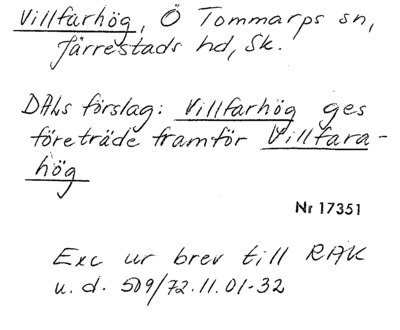 Villfarhög, Ö Tommarps sn,
Järrestads hd, Sk.
DALs förslag: Villfarhög ges
företräde framför Villfara-
hög
Nr 17351
Exc ur brev till RAK
u. d. 509/72.11.01-32